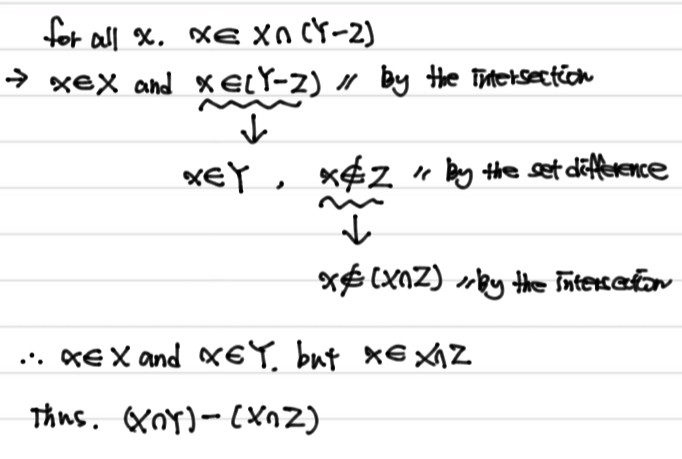 for all x. x∈ X∩(Y-Z)
→ x∈X and x∈(Y-Z) // by the intersection
↓
x∈Y , x∉Z // by the set difference
↓
x∉(X∩Z) // by the intersection
∴ x∈X and x∈Y. but x∈ X∩Z
Thus. (X∩Y)-(X∩Z)